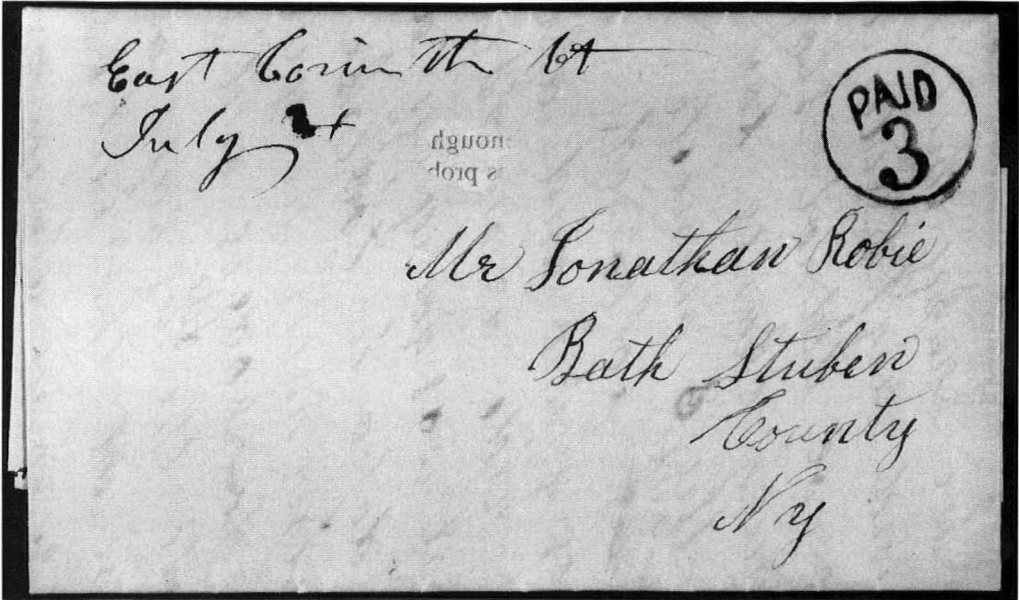 East Corinth Vt
July
PAID
3
enough
s prob
Mr Jonathan Robie
Bath Stuben
County
Ny